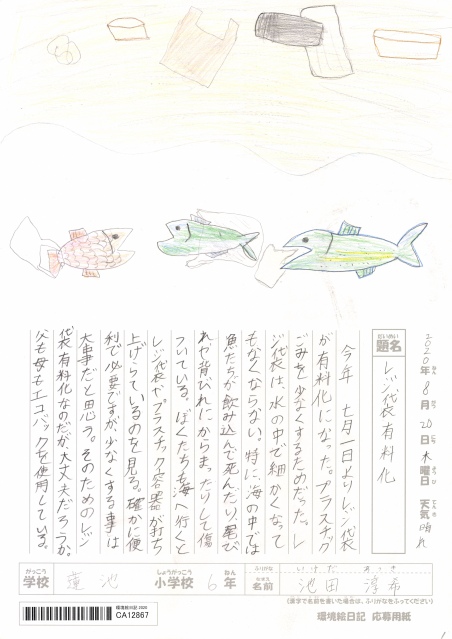 2020年 8月 20日 木曜日 天気 晴れ
ねん がつ にち ようび てんき
だいめい
題名
レジ袋有料化
今年、七月一日よりレジ袋
が有料化になった。プラスチック
ごみを少なくするためだった。レ
ジ袋は、水の中で細かくなって
もなくならない。特に、海の中では
魚たちが飲み込んで死んだり、尾び
れや背びれにからまったりして傷
ついている。ぼくたちも海へ行くと
レジ袋やプラスチック容器が打ち
上げられているのを見る。確かに便
利で必要ですが少なくする事は
大事だと思う。そのためのレジ
袋有料化なのだが大丈夫だろうか。
父も母もエコバックを使用している。
がっこう しょうがっこう ねん ふりがな いけだ あつき
学校 蓮池 小学校 6年 なまえ 名前 池田 淳希
(漢字で名前を書いた場合は、ふりがなをふってください)
環境絵日記 2020
CA12867
環境絵日記 応募用紙